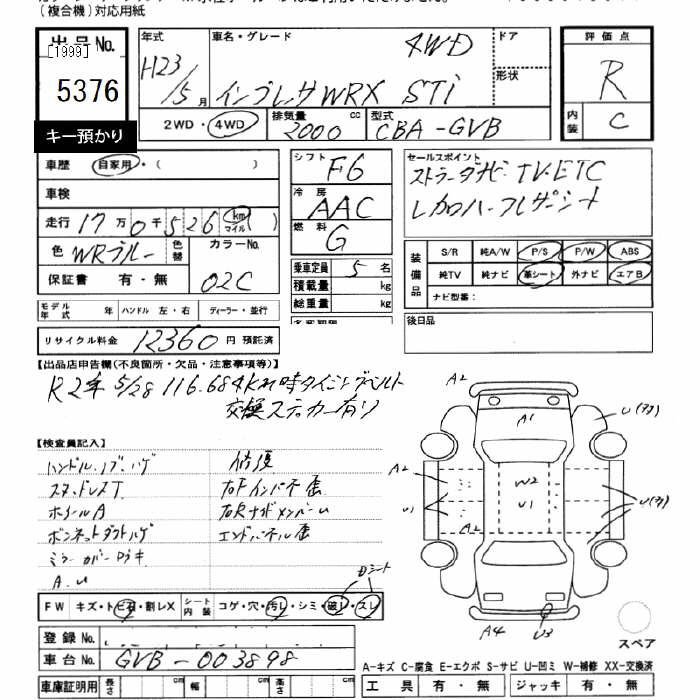 (複合機)対応用紙
出品No.
[1999]
5376
キー預かり
年式 H23/5月
車名・グレード 4WD
インプレッサWRX STi
ドア
形状
2WD・4WD 排気量 2000 cc 型式 CBA-GVB
評価点
R
内装 C
車歴 自家用・( )
車検
走行 17万0千526 km マイル ( )
色 WRブルー 色替 カラーNo. 02C
保証書 有・無
モデル年式 年 ハンドル 左・右 ディーラー・並行
リサイクル料金 12360 円 預託済
シフト F6
冷房 AAC
燃料 G
乗車定員 5 名
積載量 kg
総重量 kg
セールスポイント
TV.ETC
レカロハーフレザーシート
装備品
S/R 純A/W P/S P/W ABS
純TV 純ナビ 革シート 外ナビ エアB
ナビ型番:
後日品
【出品店申告欄(不良箇所・欠品・注意事項等)】
R2年 5/28 116.684K時タイミングベルト
交換ステッカー有り
【検査員記入】
ハンドル.ノブハゲ 修復
スタッドレスT 右Fインパネ歪
ホイールA 右Rサイドメンバーu
ボンネットダクトハゲ エンドパネル歪
ミラーカバーワレキ
A.u
Dシート
FW キズ・トビ石・割レX シート内装 コゲ・穴・汚レ・シミ・破レ・スレ
登録No.
車台No. GVB-003898
車庫証明用 長さ cm 幅 cm 高さ cm
A2
A1
U(アタ)
A2
W2
U1
U1
A2
U(アタ)
A4
U3
スペア
A-キズ C-腐食 E-エクボ S-サビ U-凹ミ W-補修 XX-交換済
工具 有・無 ジャッキ 有・無